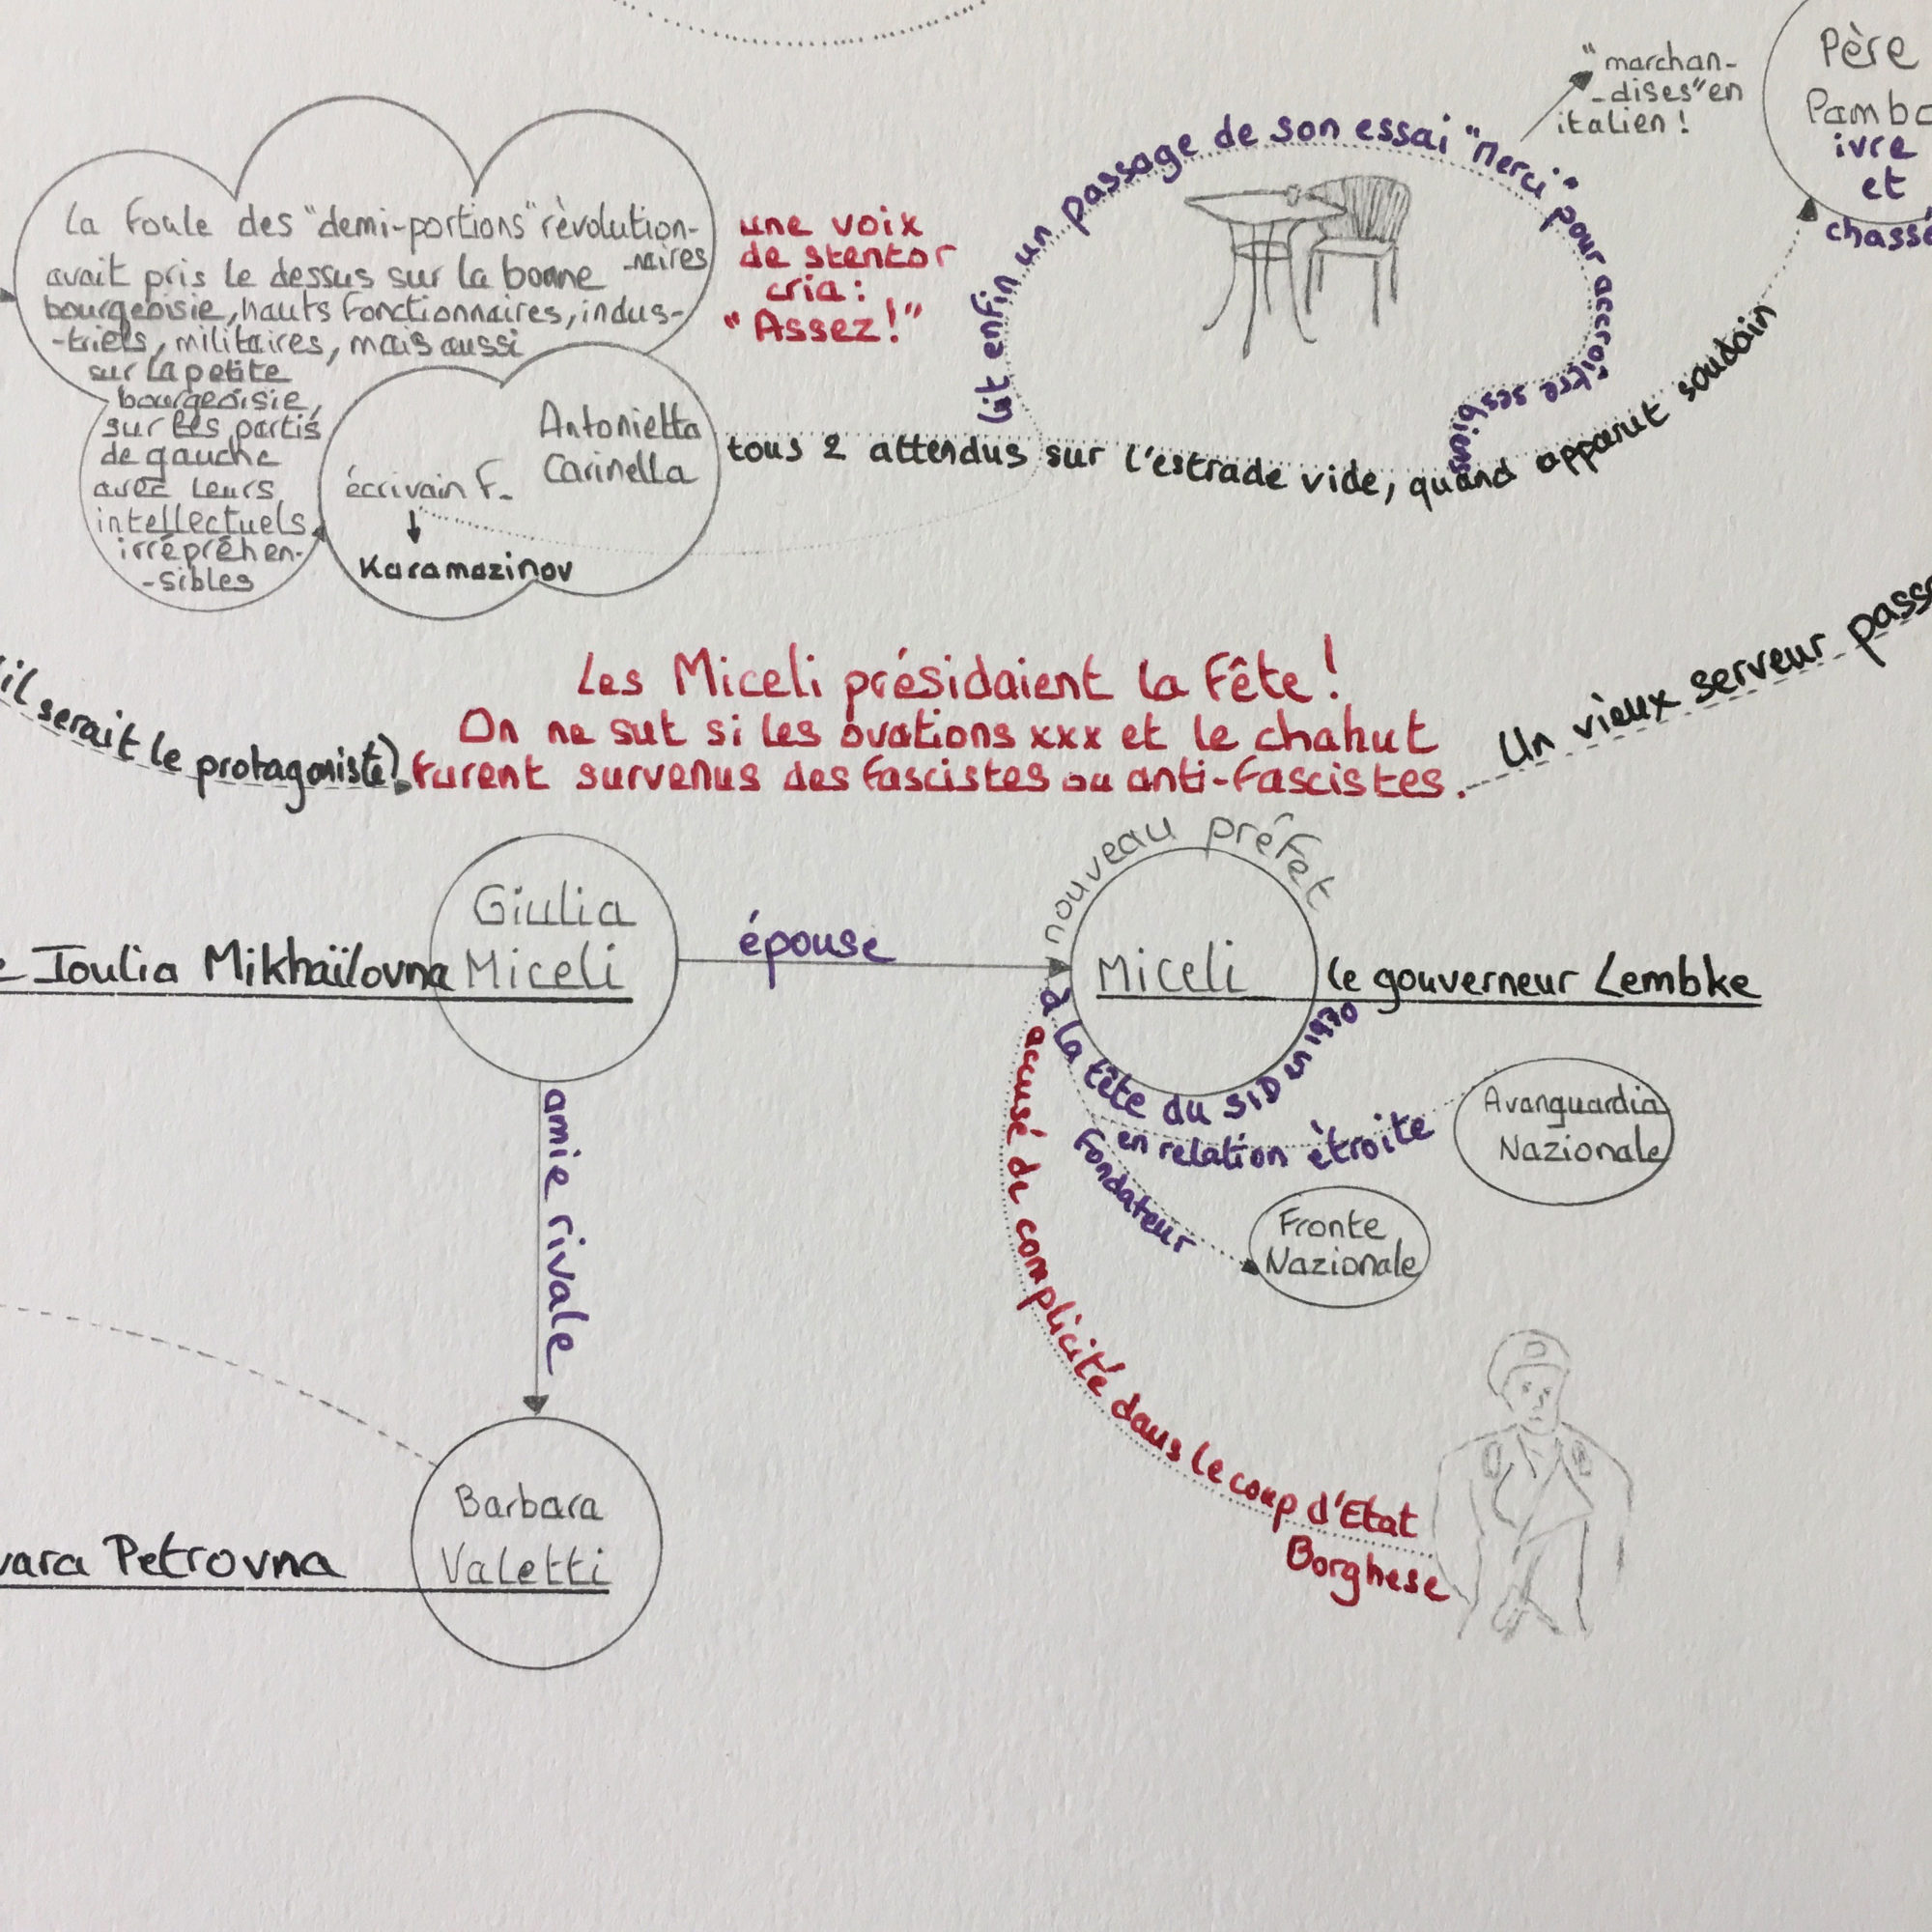 La foule des "demi-portions" révolution-
-naires
avait pris le dessus sur la bonne
bourgeoisie, hauts fonctionnaires, indus-
-triels, militaires, mais aussi
sur la petite
bourgeoisie,
sur les partis
de gauche
avec leurs
intellectuels
irrépréhen-
-sibles
une voix
de stentor
cria :
"Assez!"
lit enfin un passage de son essai "Merci" pour accroître ses biens
"marchan-
-dises" en
italien !
Père
ivre
et
Antonietta
Carinella
écrivain F.
Karamazinov
tous 2 attendus sur l'estrade vide, quand apparut soudain
Les Miceli présidaient la fête !
On ne sut si les ovations xxx et le chahut
furent survenus des fascistes ou anti-fascistes.
il serait le protagoniste)
Un vieux serveur
Ioulia Mikhaïlovna
Giulia
Miceli
épouse
nouveau préfet
Miceli
le gouverneur Lembke
à la tête du SID en 1970
en relation ètroite
Avanguardia
Nazionale
fondateur
Fronte
Nazionale
accusé de complicité dans le coup d'Etat
Borghese
amie rivale
Barbara
Valetti
vara Petrovna